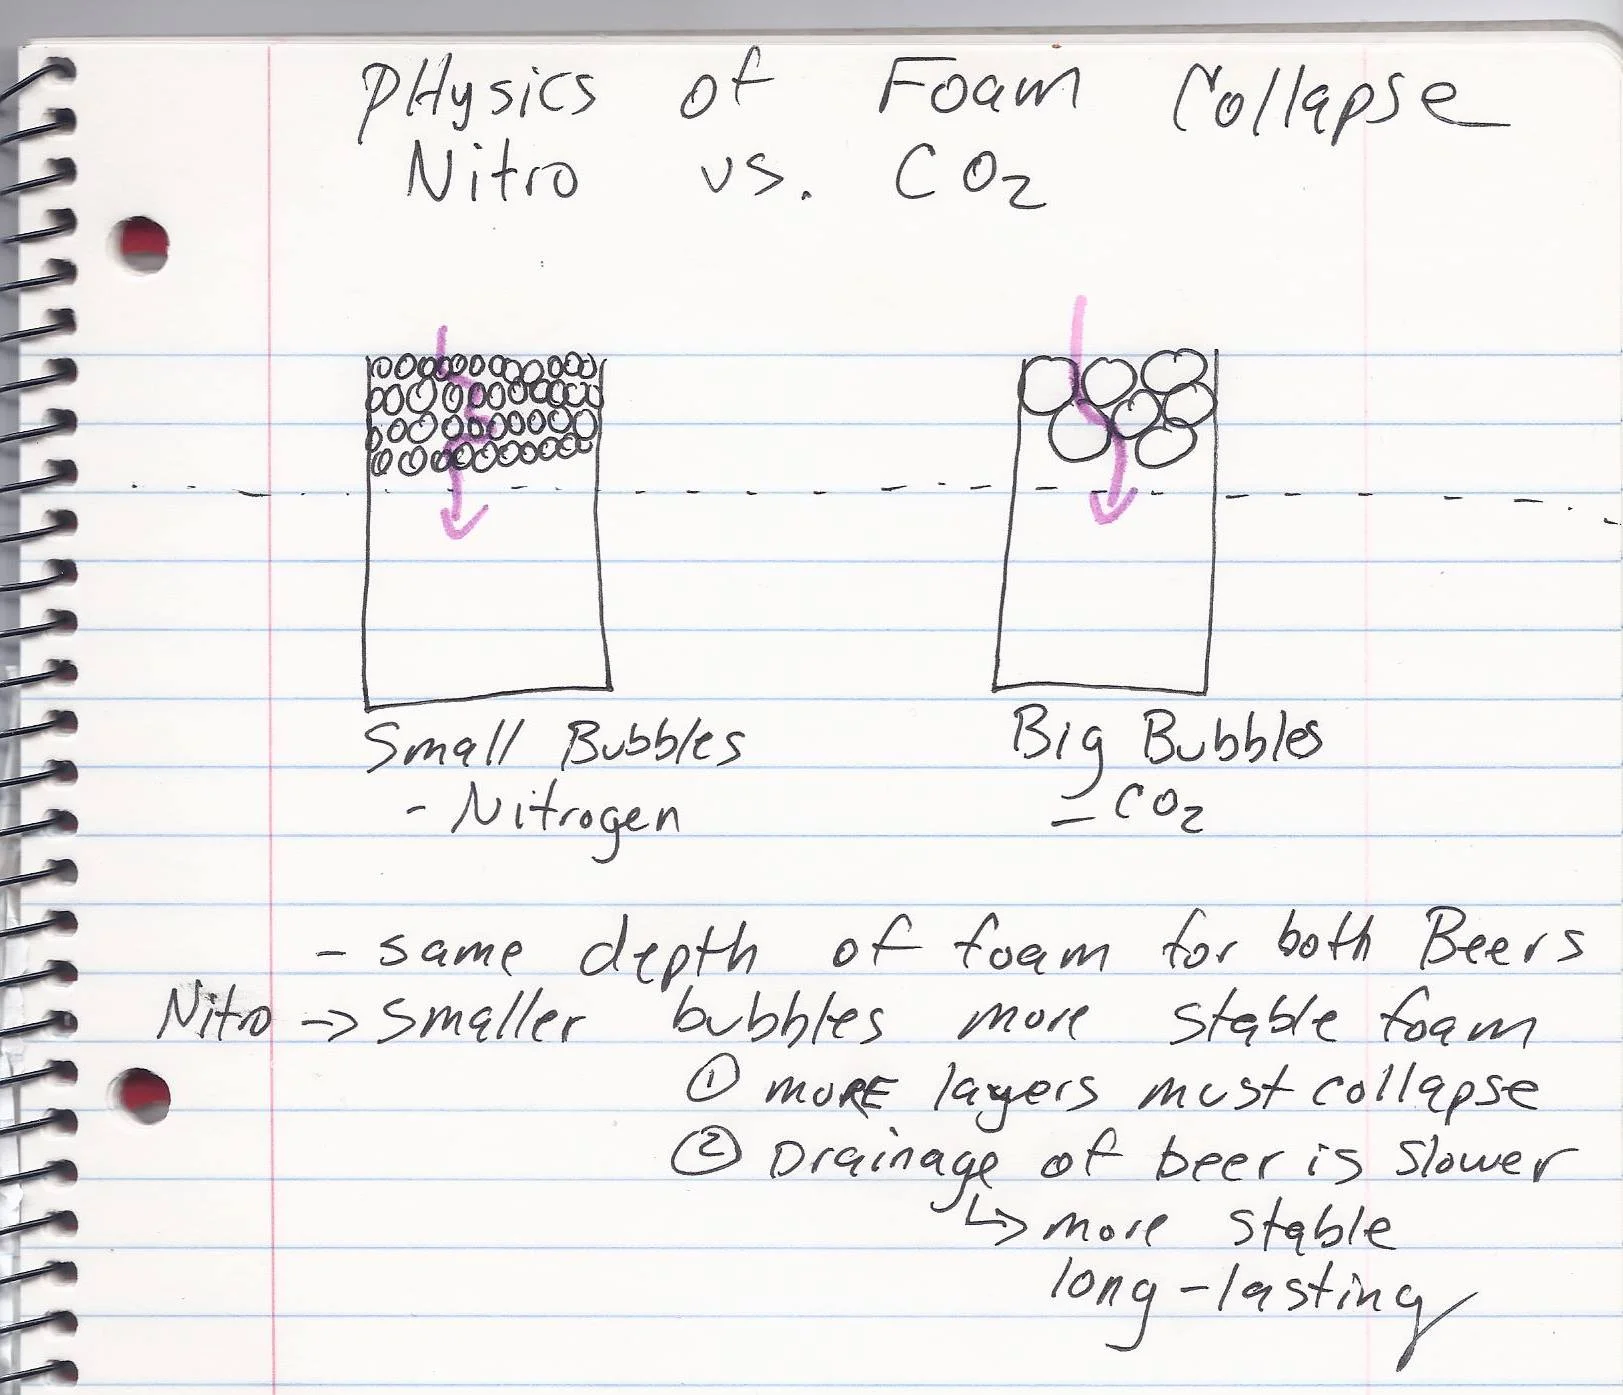 PHysics of Foam Collapse
Nitro vs. CO2
Small Bubbles
- Nitrogen
Big Bubbles
- CO2
- same depth of foam for both Beers
Nitro -> smaller bubbles more stable foam
① MORE layers must collapse
② Drainage of beer is slower
↳ more stable
long-lasting